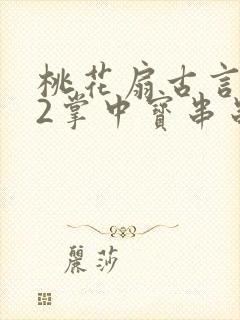 桃花扇古言
2掌中寶串
麗莎